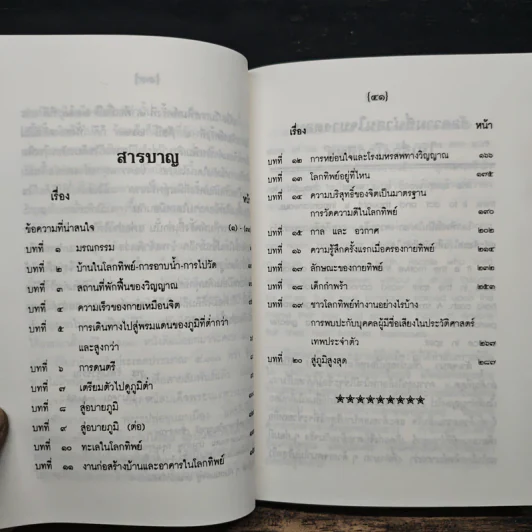 สารบาญ
เรื่อง
ข้อความที่น่าสนใจ
บทที่ ๑ มรณกรรม
บทที่ ๒ บ้านในโลกทิพย์-การอาบน้ำ-การไปวัด
บทที่ ๓ สถานที่พักฟื้นของวิญญาณ
บทที่ ๔ ความเร็วของกายเหมือนจิต
บทที่ ๕ การเดินทางไปสู่พรมแดนของภูมิที่ต่ำกว่า
และสูงกว่า
บทที่ ๖ การดนตรี
บทที่ ๗ เตรียมตัวไปดูภูมิต่ำ
บทที่ ๘ สู่อบายภูมิ
บทที่ ๙ สู่อบายภูมิ (ต่อ)
บทที่ ๑๐ ทะเลในโลกทิพย์
บทที่ ๑๑ งานก่อสร้างบ้านและอาคารในโลกทิพย์
(๔๑)
เรื่อง หน้า
บทที่ ๑๒ การหย่อนใจและโรงมหรสพทางวิญญาณ ๑๖๖
บทที่ ๑๓ โลกทิพย์อยู่ที่ไหน ๑๗๕
บทที่ ๑๔ ความบริสุทธิ์ของจิตเป็นมาตรฐาน
การวัดความดีในโลกทิพย์ ๑๙๐
บทที่ ๑๕ กาล และ อวกาศ ๒๐๒
บทที่ ๑๖ ความรู้สึกครั้งแรกเมื่อครองกายทิพย์ ๒๑๔
บทที่ ๑๗ ลักษณะของกายทิพย์ ๒๓๒
บทที่ ๑๘ เด็กกำพร้า ๒๕๓
บทที่ ๑๙ ชาวโลกทิพย์ทำงานอย่างไรบ้าง
การพบปะกับบุคคลผู้มีชื่อเสียงในประวัติศาสตร์
เทพประจำตัว ๒๖๗
บทที่ ๒๐ สู่ภูมิสูงสุด ๒๘๗